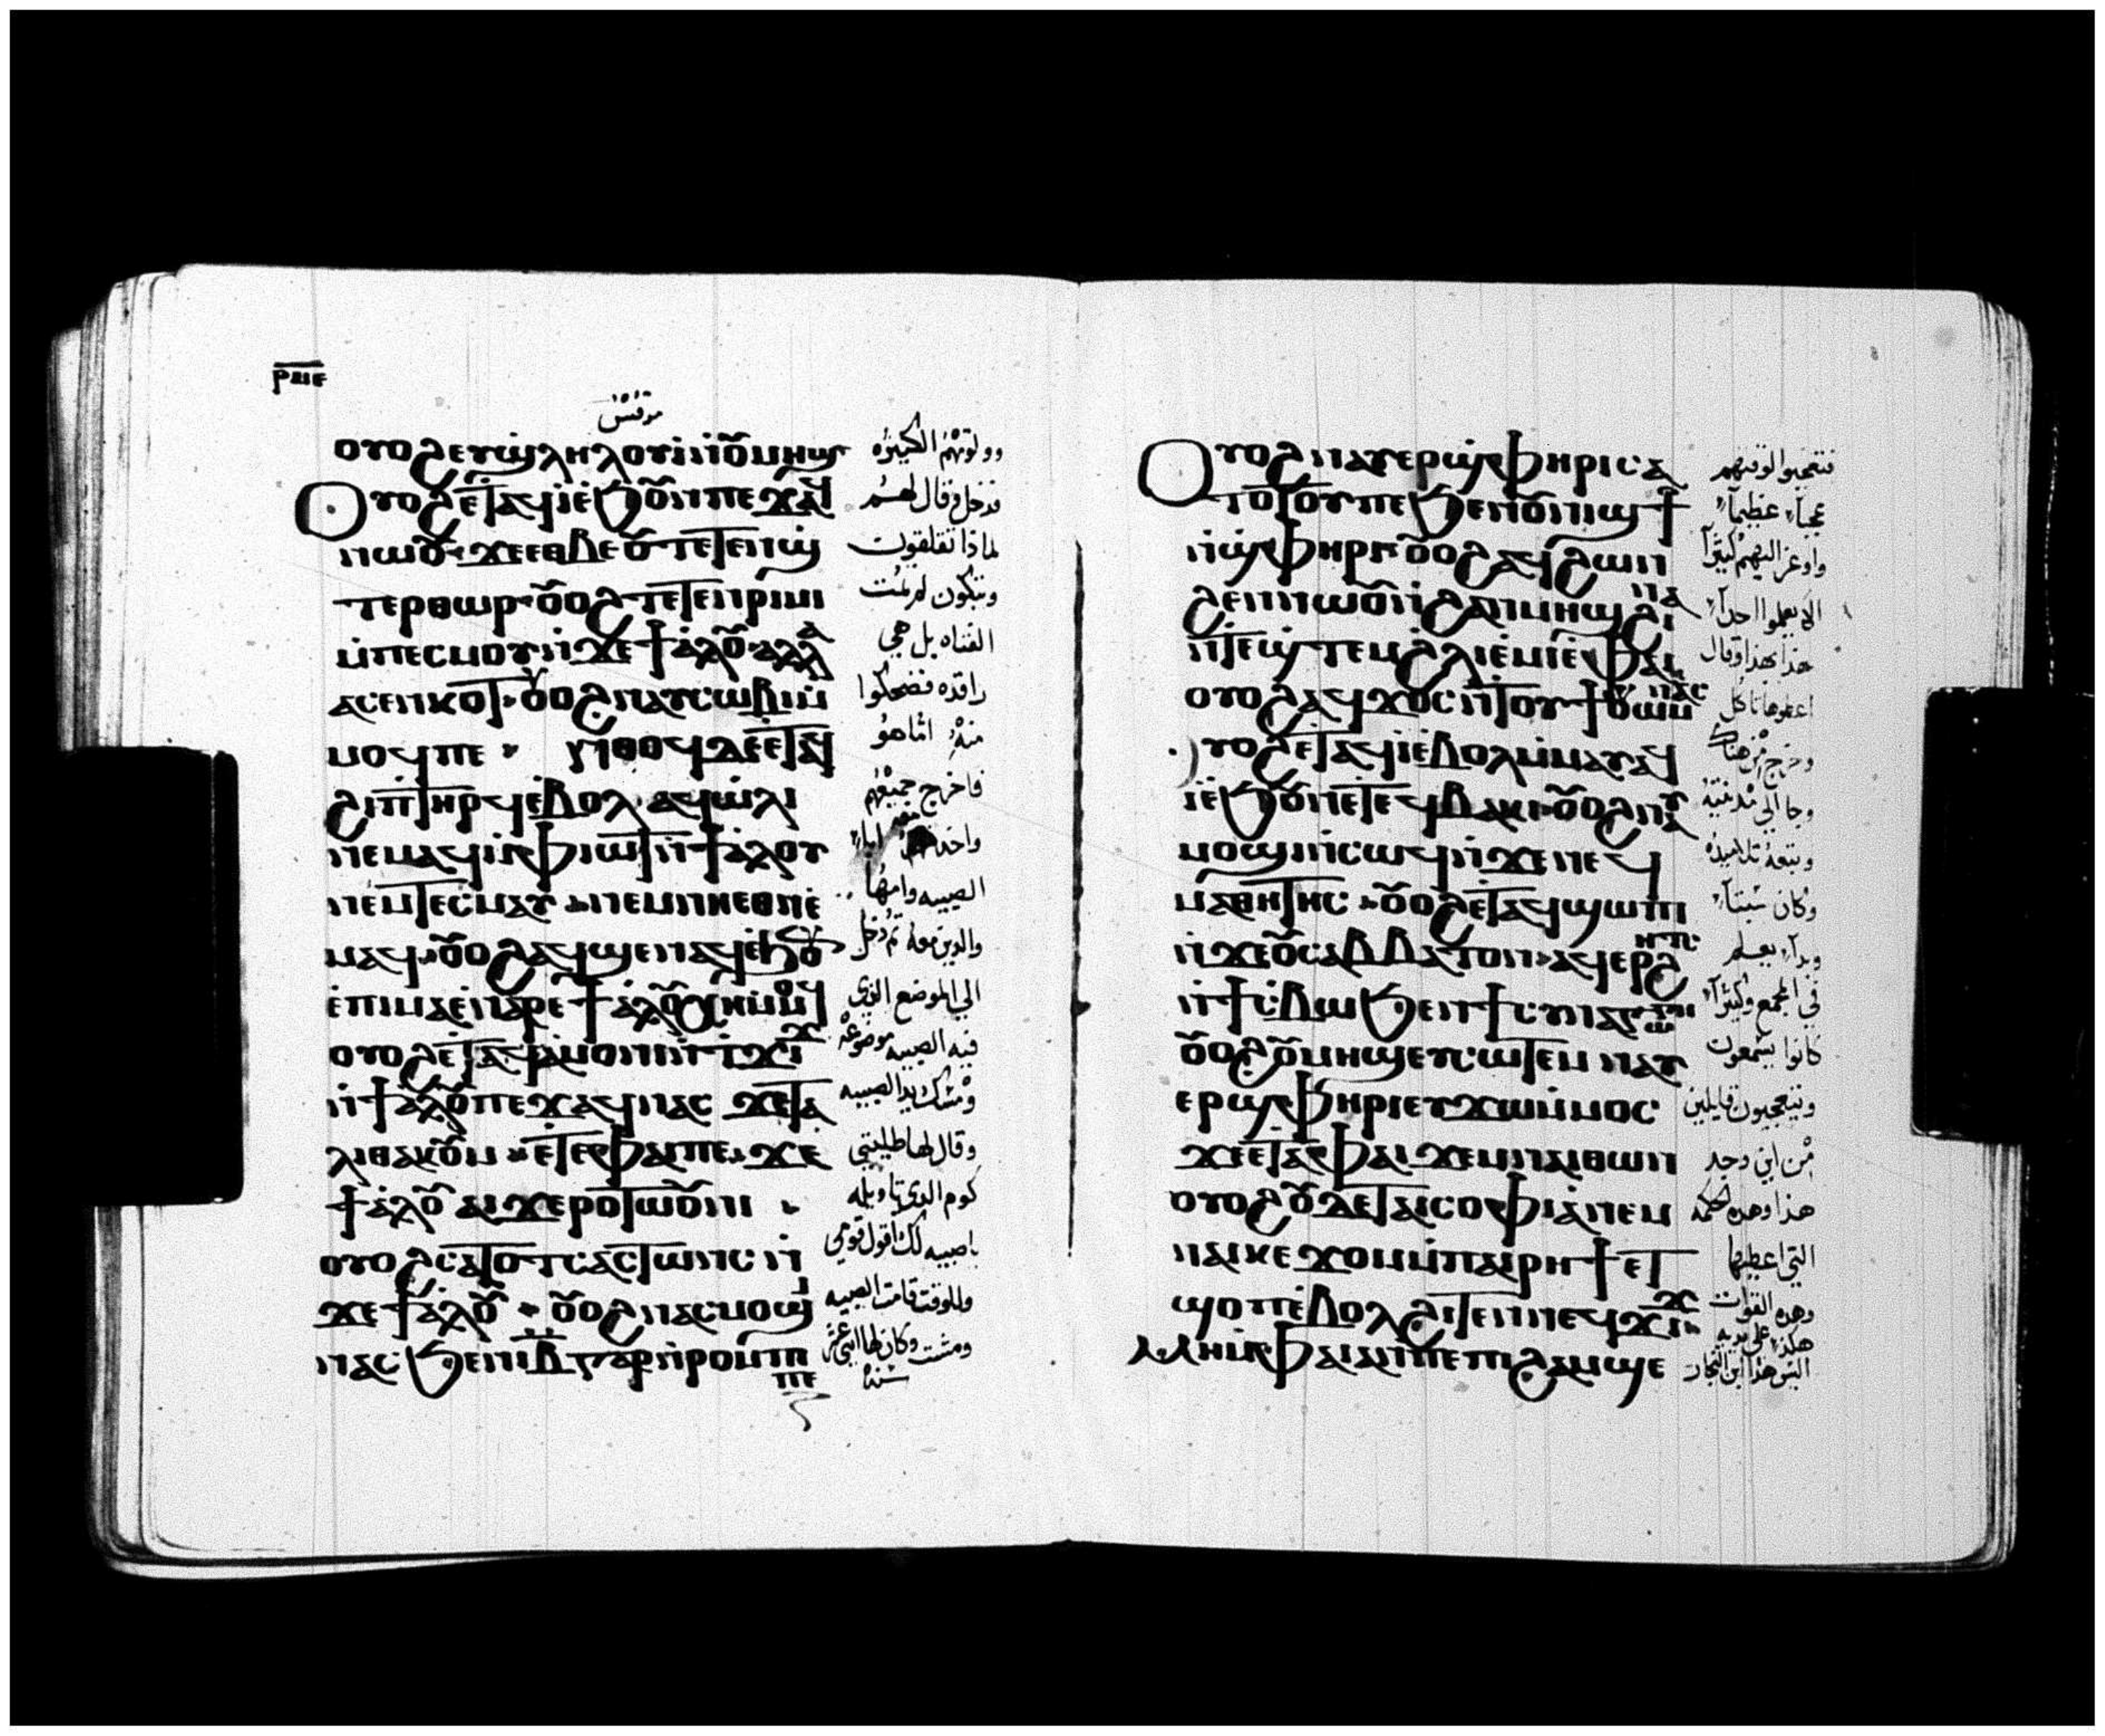 ⲣⲙⲉ
مرقس
ⲟⲩⲟϩ ⲉⲩⲱ̀ϣ ⲗⲏⲗⲟⲩⲓ̀ ⲛ̀ⲟ̅ⲙⲏϣ
ⲟⲩⲟϩ ⲉ̀ⲧⲁϥⲓ̀ ⲉ̀ϧⲟ̅ⲛ ⲡⲉϫⲁϥ
ⲛⲱⲟ̅ ϫⲉ ⲉⲑⲃⲉ ⲟ̅ ⲧⲉⲧⲉⲛϣ̀
ⲧⲉⲣⲑⲱⲣ ⲟ̅ⲟϩ ⲧⲉⲧⲉⲛⲣⲓⲙⲓ
ⲙ̀ⲡⲉⲥⲙⲟⲩ ⲛ̀ϫⲉ ϯⲁ̀ⲗⲟ̅ ⲁⲗⲗⲁ
ⲁⲥⲉⲛⲕⲟⲧ ⲟ̅ⲟϩ ⲛⲁⲩⲥⲱⲃⲓ ⲙ̀
ⲙⲟϥ ⲡⲉ ⲛ̀ⲑⲟϥ ⲇⲉ ⲉ̀ⲧⲁϥ
ϩⲓ ⲡⲧⲏⲣϥ ⲉ̀ⲃⲟⲗ ⲁϥⲱ̀ⲗⲓ
ⲛⲉⲙⲁϥ ⲙ̀ⲫⲓⲱⲧ ⲛ̀ϯⲁ̀ⲗⲟⲩ
ⲛⲉⲙ ⲧⲉⲥⲙⲁⲩ ⲛⲉⲙ ⲛⲏⲉⲑⲛⲉ̀
ⲙⲁϥ ⲟ̅ⲟϩ ⲁϥϣⲉⲛⲁϥ ⲉ̀ϧⲟ̅
ⲉ̀ⲡⲓⲙⲁ ⲉ̀ⲛⲁⲣⲉ ϯⲁ̀ⲗⲟ̅ ⲭⲏ ⲙ̀ⲙⲟϥ
ⲟⲩⲟϩ ⲉ̀ⲧⲁϥⲁ̀ⲙⲟⲛⲓ ⲛ̀ⲧϫⲓϫ
ⲛ̀ϯⲁ̀ⲗⲟ̅ ⲡⲉϫⲁϥ ⲛⲁⲥ ϫⲉ ⲧⲁ
ⲗⲓⲑⲁ ⲕⲟ̅ⲙ ⲉ̀ⲧⲉ ⲫⲁⲓ ⲡⲉ ϫⲉ
ϯⲁ̀ⲗⲟ̅ ⲁⲓϫⲉⲣⲟ ⲧⲱⲟ̅ⲛⲓ
ⲟⲩⲟϩ ⲥⲁⲧⲟⲧⲥ ⲁⲥⲧⲱⲛⲥ ⲛ̀
ϫⲉ ϯⲁ̀ⲗⲟ̅ ⲟ̅ⲟϩ ⲛⲁⲥⲙⲟϣⲓ
ⲛⲁⲥ ϧⲉⲛ ⲓ̅ⲃ̅ ⲅⲁⲣ ⲛ̀ⲣⲟⲙⲡⲓ
ⲡⲉ
وولولتهم الكثيره
فدخل وقال لهم
لماذا تقلقون
وتبكون لم تمت
الفتاه بل هي
راقده فضحكوا
منه اما هو
فاخرج جميعهم
واخذ معه ابا
الصبيه وامها
والذين معه ثم دخل
الي الموضع الذي
فيه الصبيه موضوعه
ومسك يد الصبيه
وقال لها طاليتي
كوم الذي تاويله
ياصبيه لك اقول قومي
وللوقت قامت الصبيه
ومشت وكان لها اثني عشر
سنة
ⲟⲩⲟϩ ⲛⲁⲩⲉⲣϣⲫⲏⲣⲓ ⲥⲁ
ⲧⲟⲧⲟⲩ ⲡⲉ ϧⲉⲛ ⲟ̅ⲛⲓϣϯ
ⲛ̀ϣⲫⲏⲣⲓ ⲟ̅ⲟϩ ⲁϥϩⲱⲛ
ϩⲉⲛ ⲛⲱⲟ̅ ⲛ̀ϩⲁⲛⲙⲏϣ ϩⲓⲛⲁ
ⲛ̀ⲧⲉϣⲧⲉⲙϩⲗⲓ ⲉ̀ⲙⲓ ⲉ̀ⲫⲁⲓ
ⲟⲩⲟϩ ⲁϥϫⲟⲥ ⲛ̀ⲧⲟⲩϯ ⲟⲩⲱⲙ ⲛⲁⲥ
ⲟⲩⲟϩ ⲉ̀ⲧⲁϥⲓ̀ ⲉ̀ⲃⲟⲗ ⲙ̀ⲙⲁⲩ ⲁϥ
ⲓ̀ ⲉ̀ϧⲟ̅ⲛ ⲉ̀ⲧⲉϥⲃⲁⲕⲓ ⲟ̅ⲟϩ ⲛⲁⲩ
ⲙⲟϣⲓ ⲛ̀ⲥⲱϥ ⲛ̀ϫⲉ ⲛⲉϥ
ⲙⲁⲑⲏⲧⲏⲥ ⲟ̅ⲟϩ ⲉ̀ⲧⲁϥϣⲱⲡⲓ
ⲛ̀ϫⲉ ⲟ̅ⲥⲁⲃⲃⲁⲧⲟⲛ ⲁϥⲉⲣϩⲏⲧⲥ
ⲛ̀ϯⲥ̀ⲃⲱ ϧⲉⲛ ϯⲥⲩⲛⲁⲅⲱⲅⲏ
ⲟ̅ⲟϩ ⲟ̅ⲙⲏϣ ⲉⲩⲥⲱⲧⲉⲙ ⲛⲁⲩ
ⲉⲣϣⲫⲏⲣⲓ ⲉⲩϫⲱ ⲙ̀ⲙⲟⲥ
ϫⲉ ⲉ̀ⲧⲁ ⲫⲁⲓ ϫⲉⲙ ⲛⲁⲓ ⲑⲱⲛ
ⲟⲩⲟϩ ⲟ̅ ⲇⲉ ⲧⲁⲓⲥⲟⲫⲓⲁ̀ ⲛⲉⲙ
ⲛⲁⲓⲕⲉϫⲟⲙ ⲙ̀ⲡⲁⲓⲣⲏϯ ⲉⲧ
ϣⲟⲡ ⲉ̀ⲃⲟⲗ ϩⲓⲧⲉⲛ ⲛⲉϥϫⲓϫ
ⲙⲏ ⲙ̀ⲫⲁⲓ ⲁⲛ ⲡⲉ ⲡⲓϩⲁⲙϣⲉ
فتعجبوا لوقتهم
عجباً عظيماً
واوعز اليهم كثيراً
الا يعلموا احداً
هذا بهذا وقال
اعطوها تاكل
وخرج من هناك
وجا الي مدينته
وتبعه تلاميذه
وكان سبتاً
وبدا يعلم
في المجمع وكثيراً
كانوا يسمعون
ويتعجبون قايلين
من اين وجد
هذا وهذه الحكمه
التي اعطيها
وهذه القوات
هكذا علي يديه
اليس هذا ابن النجار